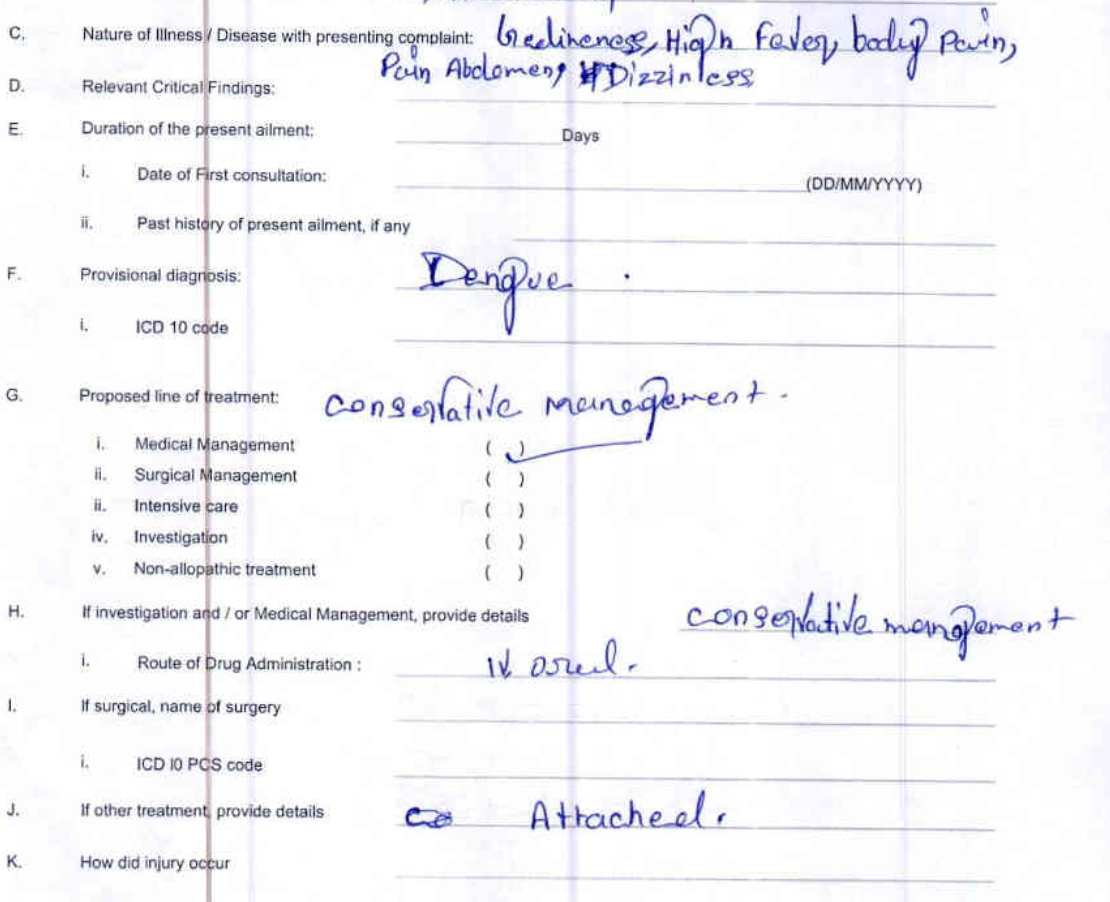 C. Nature of Illness / Disease with presenting complaint: High Fever, body Pain,
Pain Abdomen, Dizziness
D. Relevant Critical Findings:
E. Duration of the present ailment: Days
i. Date of First consultation: (DD/MM/YYYY)
ii. Past history of present ailment, if any
F. Provisional diagnosis: Dengue .
i. ICD 10 code
G. Proposed line of treatment: conservative management .
i. Medical Management ( )
ii. Surgical Management ( )
ii. Intensive care ( )
iv. Investigation ( )
v. Non-allopathic treatment ( )
H. If investigation and / or Medical Management, provide details conservative management
i. Route of Drug Administration : IV oral.
I. If surgical, name of surgery
i. ICD I0 PCS code
J. If other treatment, provide details Attached.
K. How did injury occur